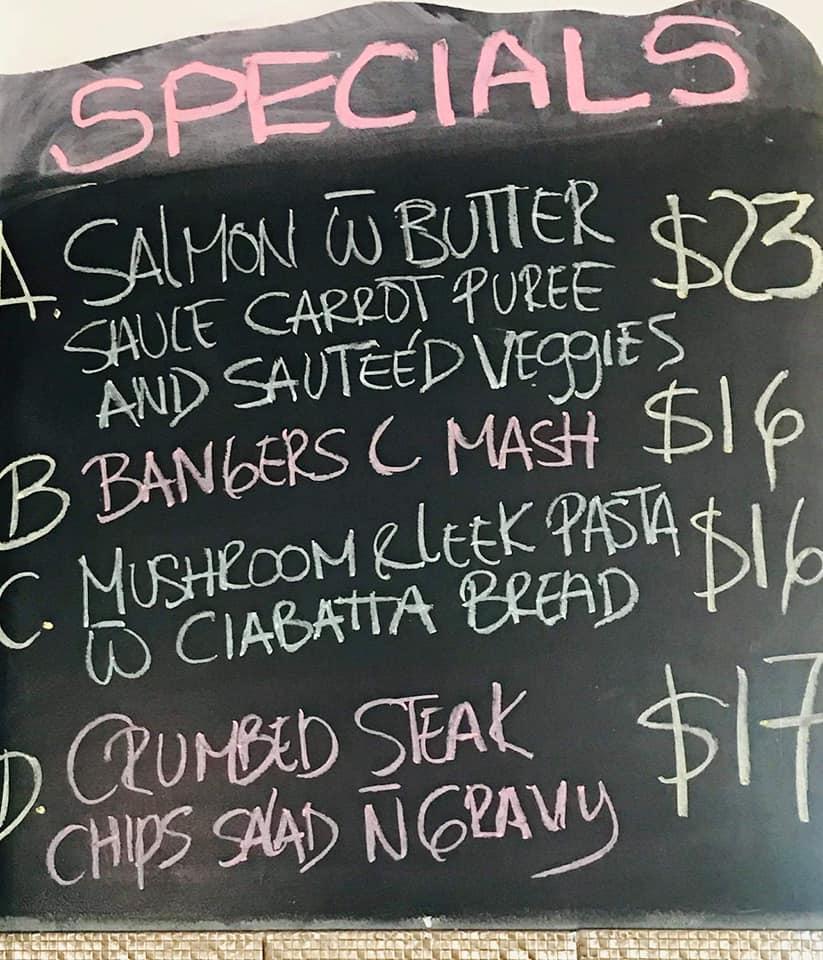 SPECIALS
A. SALMON W̄ BUTTER $23
SAUCE CARROT PUREE
AND SAUTEÉD VEggiES
B BANGERS C MASH $16
C. MUSHROOM & LEEK PASTA $16
W̄ CIABATTA BREAD
D. CRUMBED STEAK $17
CHIPS SALAD N̄ GRAVY